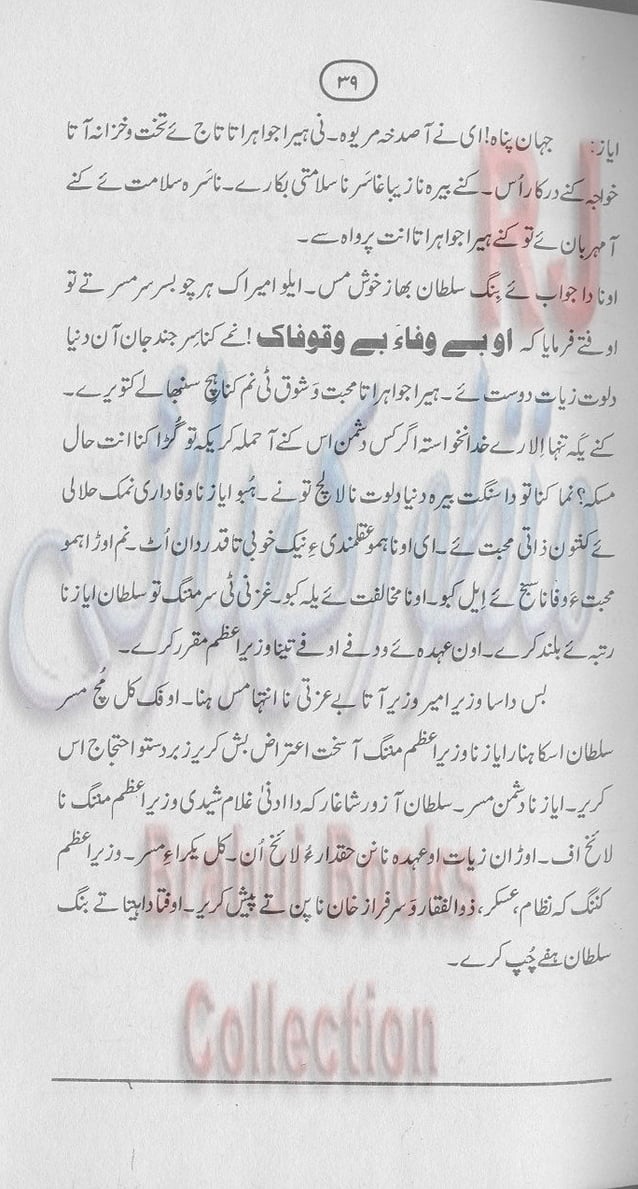 ۳۹
ایاز: جہان پناہ! ای نے آصدخہ مریوہ۔ نی ہیرا جواہراتا تاج ئے تخت و خزانہ آتا
خواجہ کنے درکار اُس۔ کنے بیرہ نا زیبا غاسر نا سلامتی بکارے۔ ناسرہ سلامت ئے کنے
آ مہربان ئے تو کنے ہیرا جواہراتا انت پرواہ سے۔
اونا دا جواب ئے بِنگ سلطان بھاز خوش مس۔ ایلو امیراک ہر چو بسر سر مسر تے تو
اوفتے فرمایا کہ او بے وفاءَ بے وقوفاک! نمے کنا سر جند جان آن دنیا
دلوت زیات دوست ئے۔ ہیرا جواہراتا محبت وَ شوق ٹی نم کنا ہِچ سنبھالے کتویرے۔
کنے یگہ تنہا اِلارے خدانخواستہ اگر کس دشمن اس کنے آ حملہ کریکہ تو گُڑا کنا انت حال
مسکہ؟ نما کنا تو دا سنگت بیرہ دنیا دلوت نا لالچ تو نے۔ ہُبو ایاز نا وفاداری نمک حلالی
ئے کنتون ذاتی محبت ئے۔ ای اونا ہمو عقلمندی ءِ نیک خوبی تا قدردان اُٹ۔ نم اوڑا ہمو
محبت ءُ وفا نا سبخ ئے اِیل کبو۔ اونا مخالفت ئے یلہ کبو۔ غزنی ٹی سر مننگ تو سلطان ایاز نا
رتبہ ئے بلند کرے۔ اون عہدہ ئے ودفے اوفے تینا وزیراعظم مقرر کرے۔
بس داسا وزیر امیر وزیر آتا بے عزتی نا انتہا مس ہنا۔ اوفک کل مُچ مسر
سلطان اسکا ہنار ایاز نا وزیراعظم مننگ آ سخت اعتراض بش کریر زبردستو احتجاج اس
کریر۔ ایاز نا دشمن مسر۔ سلطان آ زور شاغار کہ دا ادنیٰ غلام شیدی وزیراعظم مننگ نا
لائخ اف۔ اوڑان زیات او عہدہ نا نن حقدار ءُ لائخ اُن۔ کل یکراءِ مسر۔ وزیراعظم
کننگ کہ نظام، عسکر، ذوالفقار وَ سرفراز خان نا پن تے پیش کریر۔ اوفتا دا ہیتا تے بنگ
سلطان ہفے چُپ کرے۔
RJ
منظور کیازئی
Brahui Books
Collection